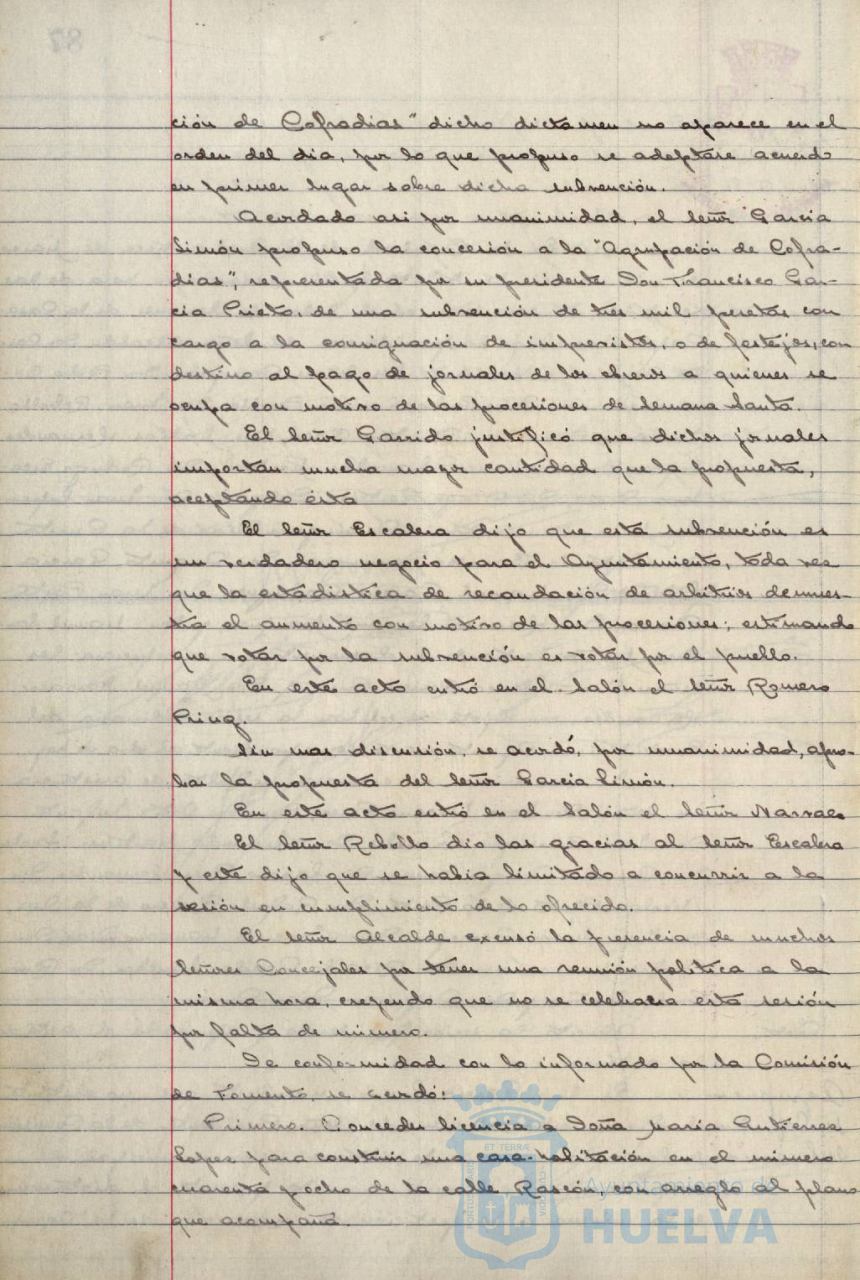 ción de Cofradias" dicho dictamen no aparece en el
orden del dia, por lo que propuso se adoptase acuerdo
en primer lugar sobre dicha subvención.
Acordado asi por unanimidad, el señor Garcia
Simón propuso la concesión a la "Agrupación de Cofra-
dias", representada por su presidente Don Francisco Gar-
cia Prieto, de una subvención de tres mil pesetas con
cargo a la consignación de imprevistos, o de festejos, con
destino al pago de jornales de los obreros a quienes se
ocupa con motivo de las procesiones de Semana Santa.
El señor Garrido justificó que dichos jornales
importan mucha mayor cantidad que la propuesta,
aceptando ésta
El señor Escalera dijo que esta subvención es
un verdadero negocio para el Ayuntamiento, toda vez
que la estadistica de recaudación de arbitrios demues-
tra el aumento con motivo de las procesiones; estimando
que votar por la subvención es votar por el pueblo.
En este acto entró en el Salón el señor Romero
Sin mas discusión, se acordó, por unanimidad, apro-
bar la propuesta del señor Garcia Simón.
En este acto entró en el Salón el señor
El señor Rebollo dio las gracias al señor Escalera
y este dijo que se habia limitado a concurrir a la
sesión en cumplimiento de lo ofrecido.
El señor Alcalde excusó la presencia de muchos
señores Concejales por tener una reunión politica a la
misma hora, creyendo que no se celebraria esta sesión
por falta de número.
De conformidad con lo informado por la Comisión
de Fomento, se acordó:
Primero. Conceder licencia a Doña Maria Gutierrez
Lopez para construir una casa-habitación en el número
cuarenta y ocho de la calle Rascón, con arreglo al plano
que acompaña.
Ayuntamiento de
HUELVA